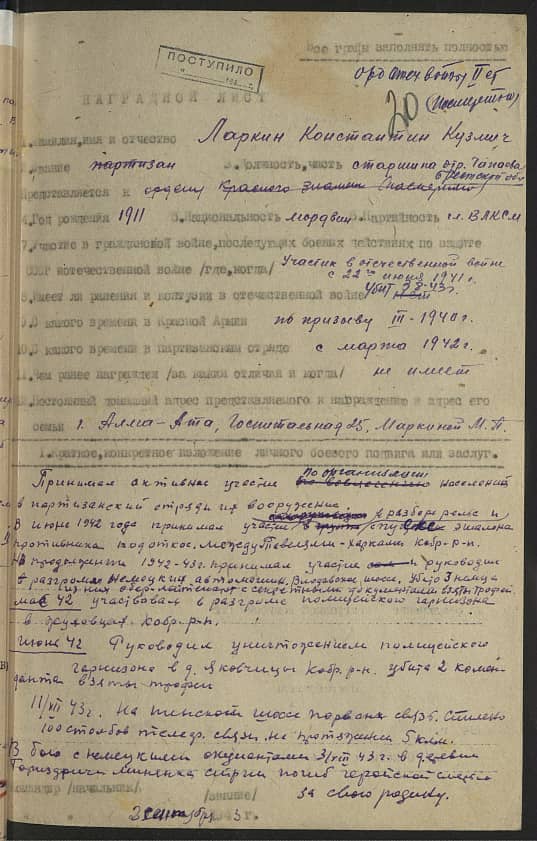 Все графы заполнять полностью
ПОСТУПИЛО
Орд Отеч войны II ст
20 (посмертно)
НАГРАДНОЙ ЛИСТ
1. Фамилия, имя и отчество Ларкин Константин Кузмич
2. Звание партизан 3. Должность, часть старшина отр. Чапаева
Брестской обл
Представляется к ордену Красного знамени (посмертно)
4. Год рождения 1911 5. Национальность мордвин 6. Партийность чл. ВЛКСМ
7. Участие в гражданской войне, последующих боевых действиях по защите
СССР и отечественной войне /где, когда/ Участник в отечественной войне
с 22го июня 1941 г.
8. Имеет ли ранения и контузии в отечественной войне убит 3.8.43г.
нет
9. С какого времени в Красной Армии по призыву III-1940г.
10. С какого времени в партизанском отряде с марта 1942г.
11. Чем ранее награжден /за какие отличия и когда/ не имеет
12. Постоянный домашний адрес представляемого к награждению и адрес его
семьи г. Алма-Ата, Госпитальная 25, Маркиной М. П.
1. Краткое, конкретное изложение личного боевого подвига или заслуг.
Принимал активное участие по организаци населения
в партизанский отряд и их вооружение.
в разборе рельс и
В июне 1942 года принимал участие в спуске эшалона
противника под откос. между Тевещами-Харками Кобр-р-н.
На продолжении 1942-43г. принимал участие и руководил
разгрома немецких автомашин. Влодавское шосе. Убито 3 немца
из них обер-лейтенант с секретными документами взяты трофеи
мае 42 участвовал в разгроме полицейского гарнизона
в Кобр-р-н.
Июне 42 Руководил уничтожением полицейского
гарнизона в д. Яковчицы Кобр. р-н. убита 2 комен
данта взяты трофеи
11/VII 43г. На шосе порвана связь. Спилено
100 столбов телефр. связи на протяжении 5 клм.
В бою с немецкими окупантами 3/VIII 43г. в деревни
погиб геройской смертю
за свою родину.
Командир /начальник/
/звание/
2 сентября 1943г.